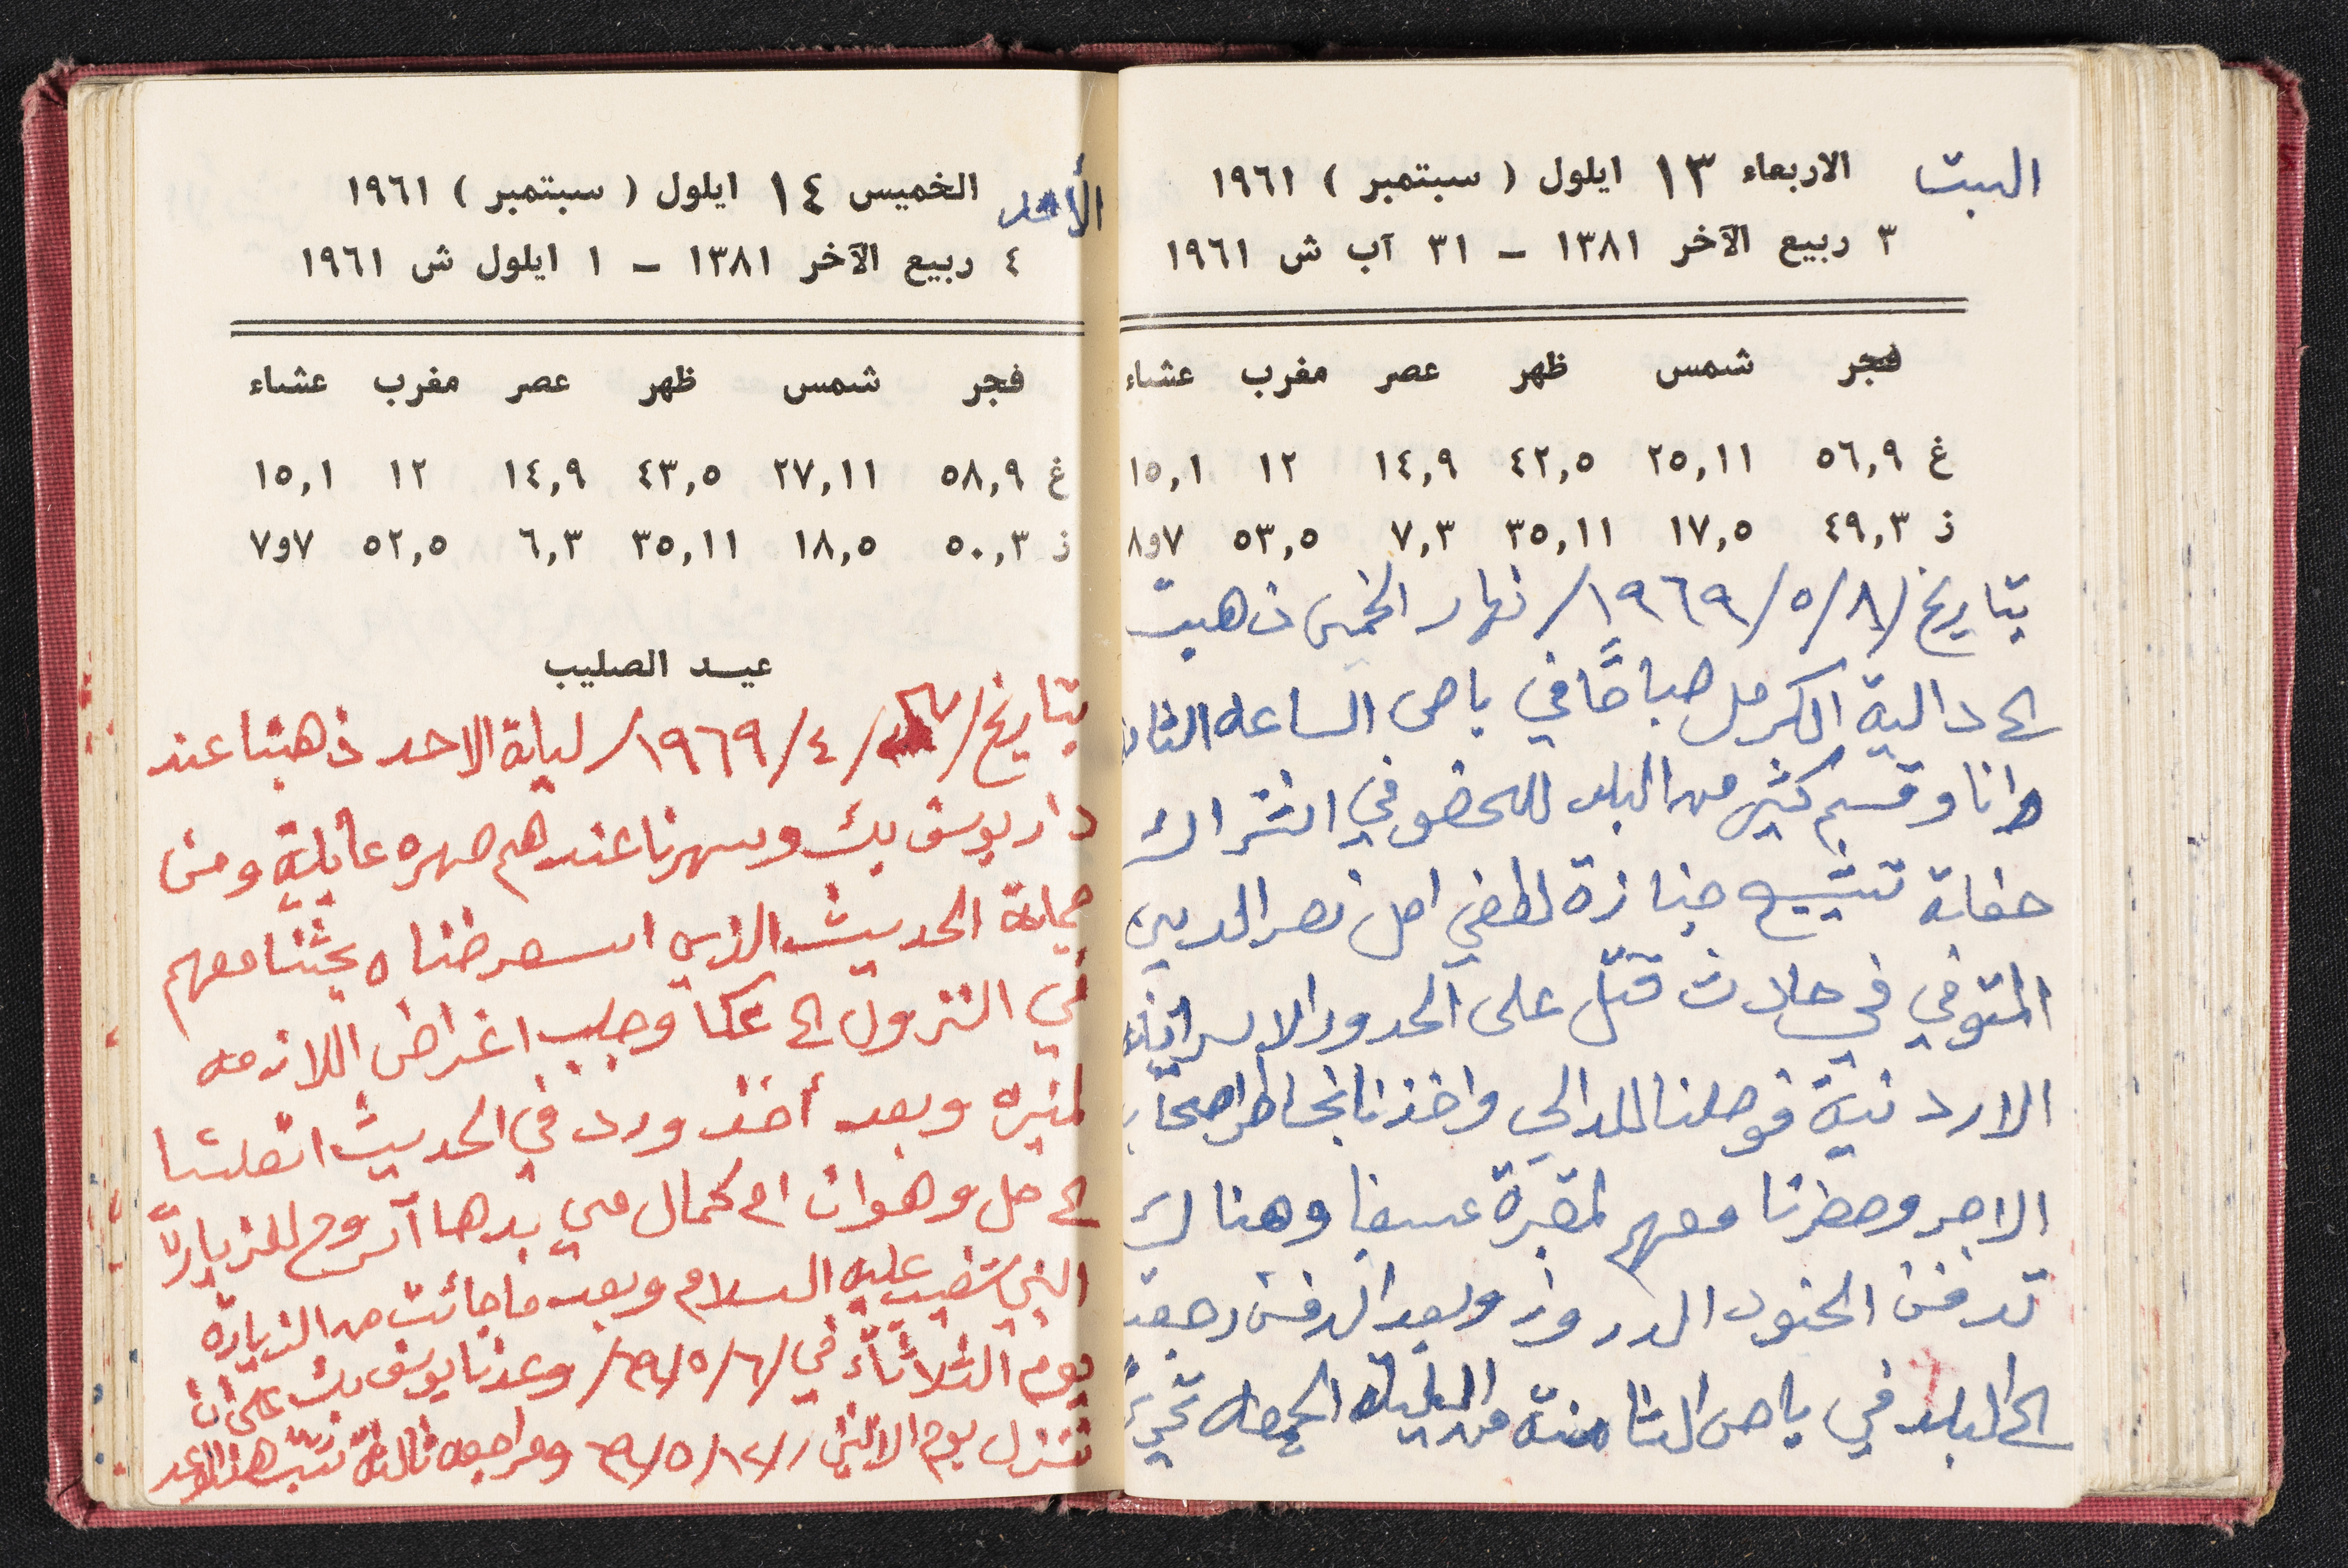 السبت
الاربعاء ١٣ ايلول ( سبتمبر ) ١٩٦١
٣ ربيع الآخر ١٣٨١ – ٣١ آب ش ١٩٦١
فجر شمس ظهر عصر مغرب عشاء
غ ٥٦,٩ ٢٥,١١ ٤٢,٥ ١٤,٩ ١٢ ١٥,١
ز ٤٩,٣ ١٧,٥ ٣٥,١١ ٧,٣ ٥٣,٥ ٧و٨
بتاريخ /٨/٥/١٩٦٩/ نهار الخميس ذهبت
الى دالية الكرمل صباحًا في باص الساعه
انا وقسم كثير من البلد للحضور في اشتراك
حفلة تشييع جنازة لطفي اصل نصر الدين
المتوفي في حادث قتل على الحدود الاسرائيلية
الاردنية فوصلنا للدالي واخذنا بخاطر اصحاب
الاجر وحضرنا معهم لمقبرة عسفيا وهناك
تدفن الجنود الدروز وبعد الدفن رجعت
الى البلد في باص الثامنة من ليلة الجمعه
الأحد
الخميس ١٤ ايلول ( سبتمبر ) ١٩٦١
٤ ربيع الآخر ١٣٨١ – ١ ايلول ش ١٩٦١
فجر شمس ظهر عصر مغرب عشاء
غ ٥٨,٩ ٢٧,١١ ٤٣,٥ ١٤,٩ ١٢ ١٥,١
ز ٥٠,٣ ١٨,٥ ٣٥,١١ ٦,٣ ٥٢,٥ ٧و٧
عيد الصليب
بتاريخ / /٤/١٩٦٩/ ليلة الاحد ذهبنا عند
دار يوسف بك وسهرنا عندهم صهره عائلية ومن
جملة الحديث الذي استعرضناه بحثنا معهم
في النزول الى عكا وجلب اغراض اللازمه
لمنيره وبعد أخذ ورد في الحديث اتصلنا
الى حل وهو ان ام كمال مي بدها اتروح للزيارة
النبي شعيب عليه السلام وبعد ما جائت من الزيارة
يوم الثلاثاء في /٦/٥/٦٩/ وعدنا يوسف بك على ان
ننزل يوم الاثنين /١٢/٥/٦٩ ومراجعه ثالثة